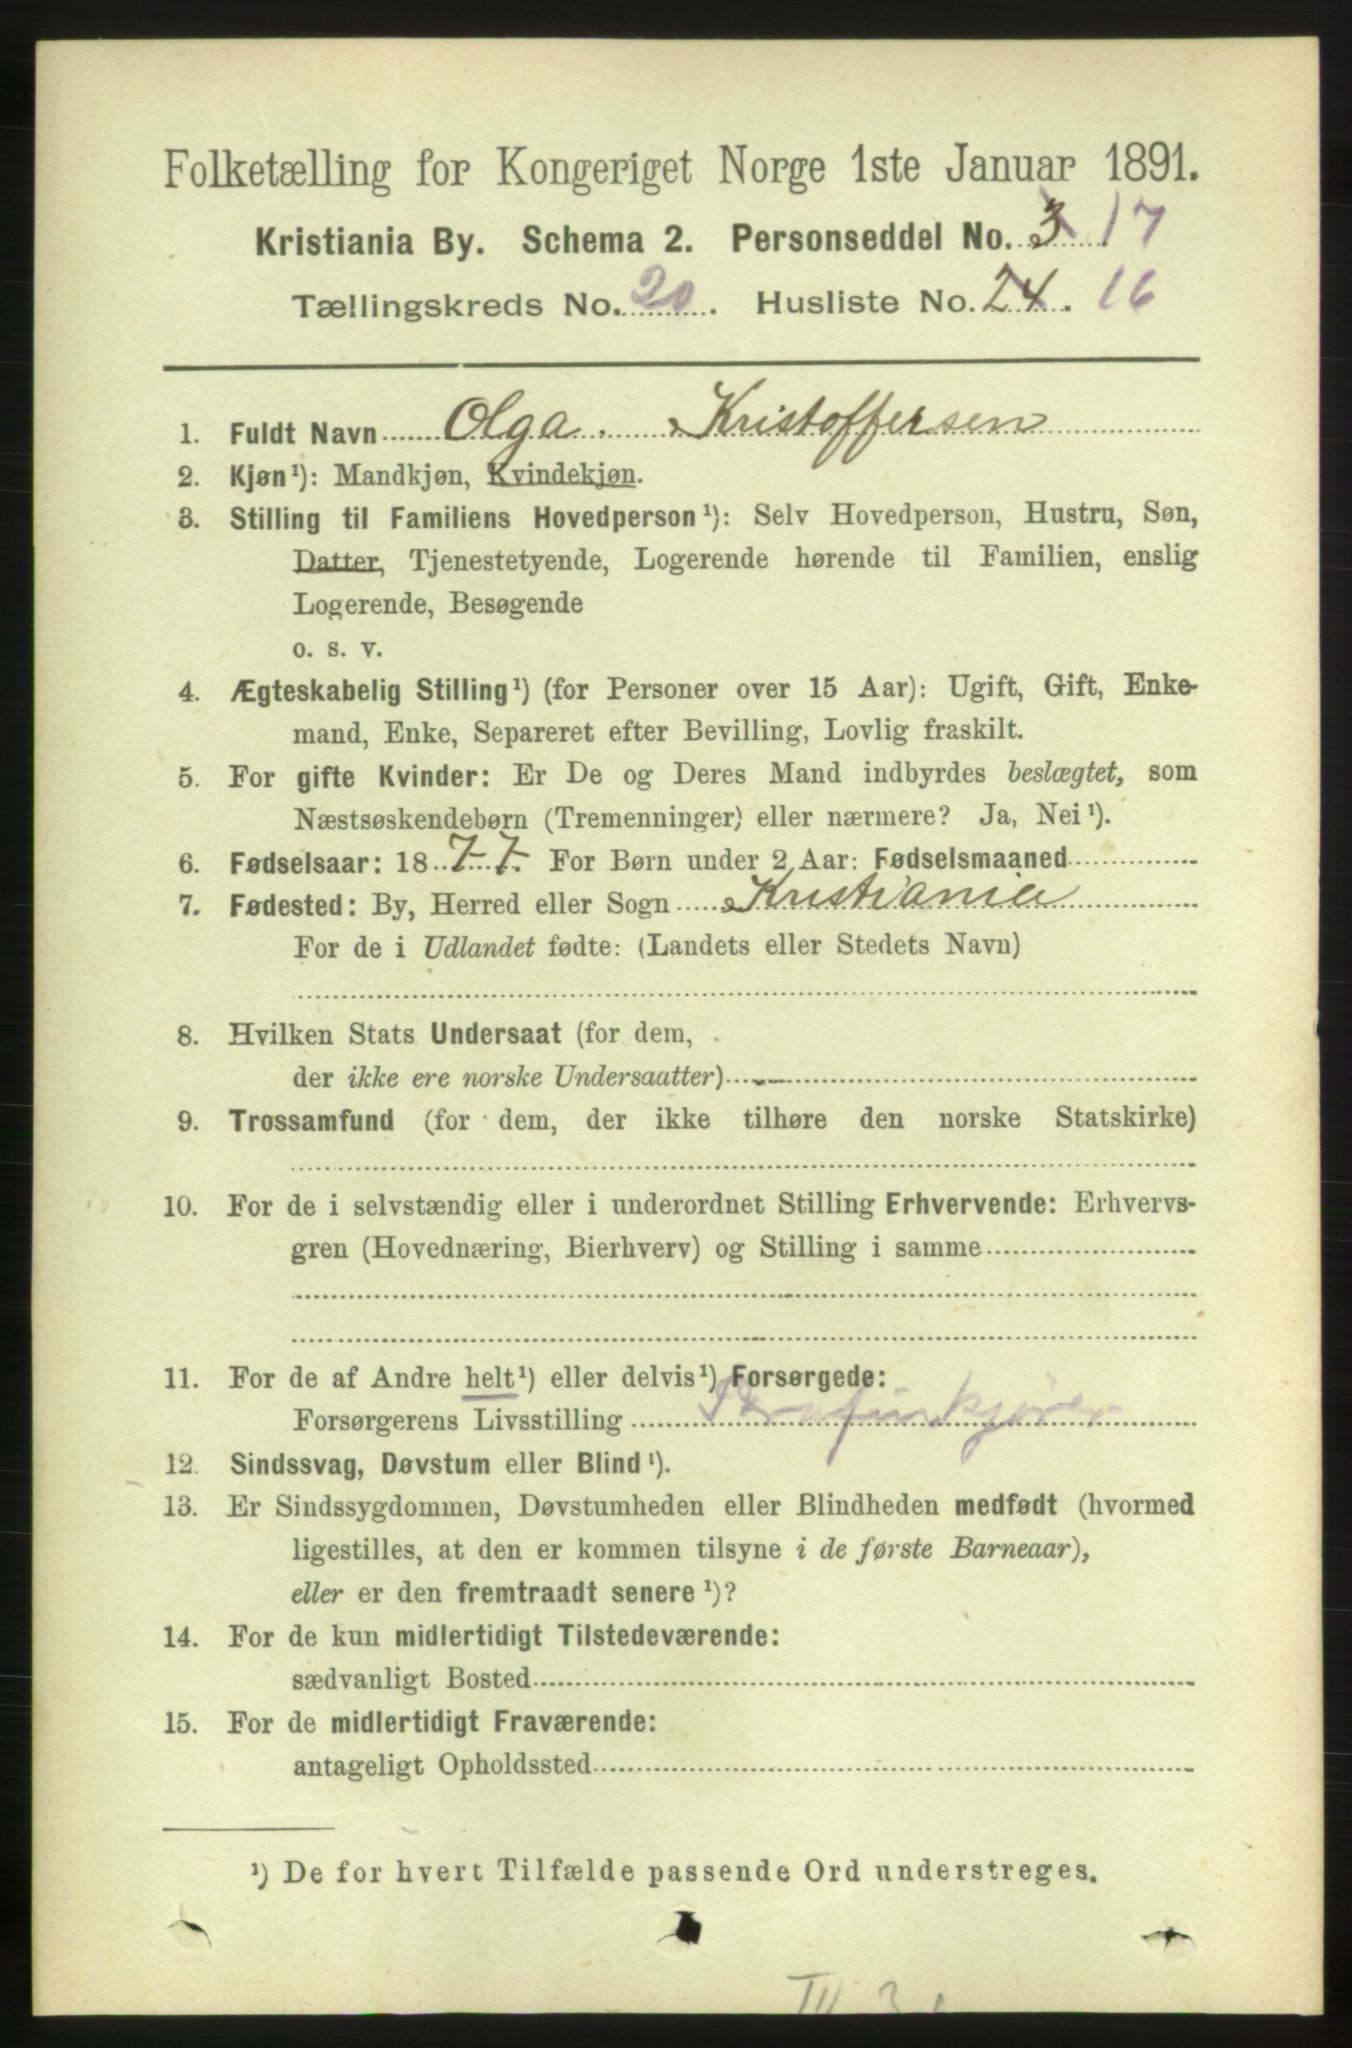 Folketælling for Kongeriget Norge 1ste Januar 1891.
Kristiania By. Schema 2. Personseddel No. 3 17
Tællingskreds No. 20. Husliste No. 24. 16
1. Fuldt Navn Olga Kristoffersen
2. Kjøn¹): Mandkjøn, Kvindekjøn.
3. Stilling til Familiens Hovedperson¹): Selv Hovedperson, Hustru, Søn,
Datter, Tjenestetyende, Logerende hørende til Familien, enslig
Logerende, Besøgende
o. s. v.
4. Ægteskabelig Stilling¹) (for Personer over 15 Aar): Ugift, Gift, Enke-
mand, Enke, Separeret efter Bevilling, Lovlig fraskilt.
5. For gifte Kvinder: Er De og Deres Mand indbyrdes beslægtet, som
Næstsøskendebørn (Tremenninger) eller nærmere? Ja, Nei¹).
6. Fødselsaar: 1877. For Børn under 2 Aar: Fødselsmaaned
7. Fødested: By, Herred eller Sogn Kristiania
For de i Udlandet fødte: (Landets eller Stedets Navn)
8. Hvilken Stats Undersaat (for dem,
der ikke ere norske Undersaatter)
9. Trossamfund (for dem, der ikke tilhøre den norske Statskirke)
10. For de i selvstændig eller i underordnet Stilling Erhvervende: Erhvervs-
gren (Hovednæring, Bierhverv) og Stilling i samme
11. For de af Andre helt¹) eller delvis¹) Forsørgede:
Forsørgerens Livsstilling
12. Sindssvag, Døvstum eller Blind¹).
13. Er Sindssygdommen, Døvstumheden eller Blindheden medfødt (hvormed
ligestilles, at den er kommen tilsyne i de første Barneaar),
eller er den fremtraadt senere¹)?
14. For de kun midlertidigt Tilstedeværende:
sædvanligt Bosted
15. For de midlertidigt Fraværende:
antageligt Opholdssted
¹) De for hvert Tilfælde passende Ord understreges.